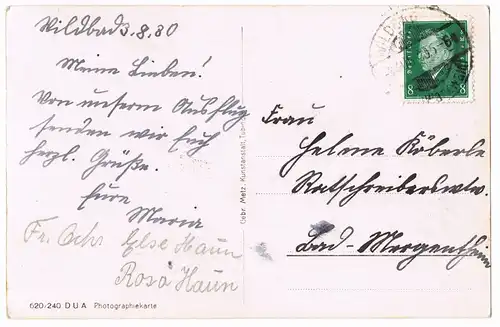 Wildbad 3.8.30
Meine Lieben!
Von unserm Ausflug
senden wir Euch
herzl. Grüße.
Eure
Maria
Fr. Ochs Else Haun
Rosa Haun
620/240 D U A Photographiekarte
Gebr. Metz, Kunstanstalt, Tüb
WILDBAD
8 8
Frau
Helene Köberle
Ratschreiberswtw.
Bad-Mergentheim